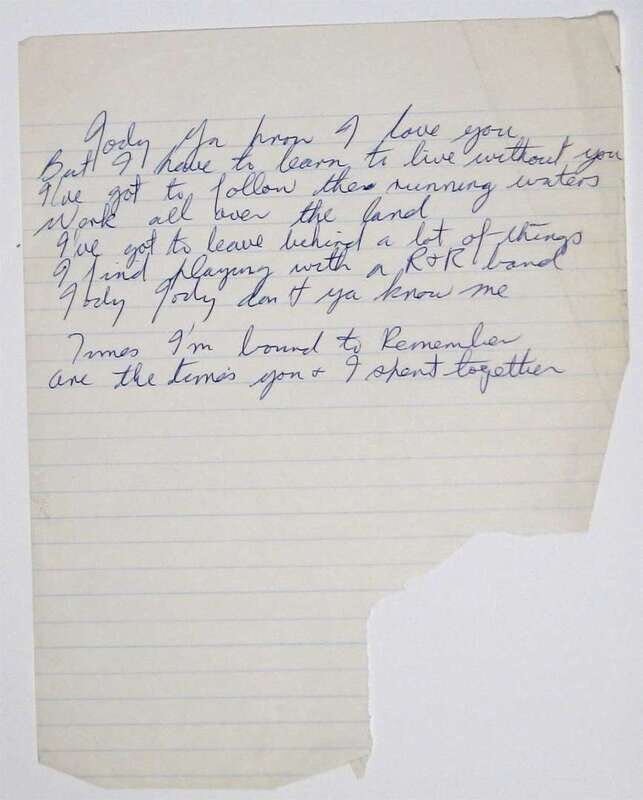 Jody Ya know I love you
But I have to learn to live without you
I've got to follow the running waters
Work all over the land
I've got to leave behind a lot of things
I find playing with a R&R band
Jody Jody don't ya know me
Times I'm bound to Remember
are the times you & I spent together